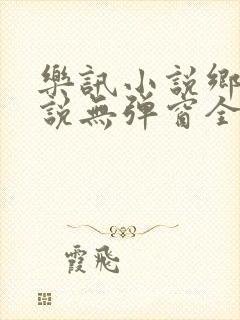 樂訊小説鄉
説無彈窗全
霞飛